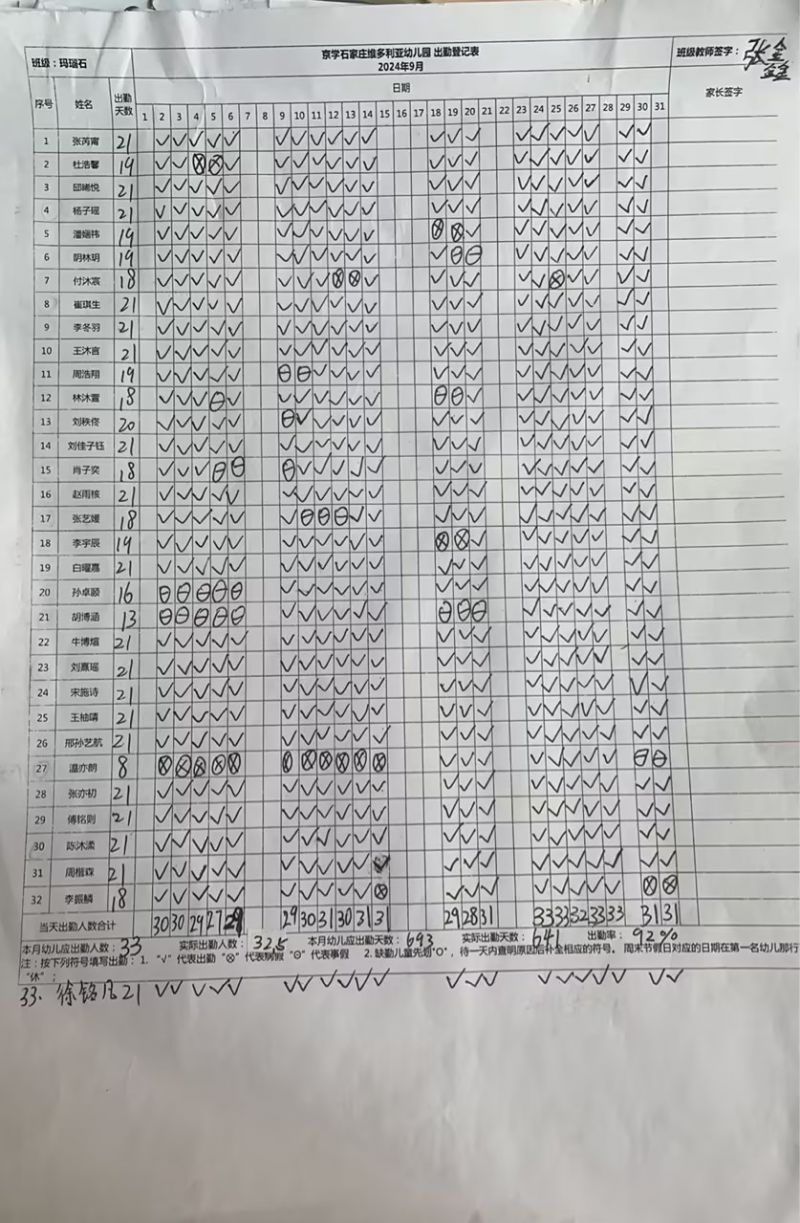 京学石家庄维多利亚幼儿园 出勤登记表
2024年9月
班级：玛瑙石
班级教师签字：张金鑫
序号 姓名 出勤天数 日期 家长签字
1 2 3 4 5 6 7 8 9 10 11 12 13 14 15 16 17 18 19 20 21 22 23 24 25 26 27 28 29 30 31
1 张芮甯 21 √√√√√ √√√√√√ √√√ √√√√√ √√
2 杜浩馨 19 √√⊗⊗√ √√√√√√ √√√ √√√√√ √√
3 邱晞悦 21 √√√√√ √√√√√√ √√√ √√√√√ √√
4 杨子瑶 21 √√√√√ √√√√√√ √√√ √√√√√ √√
5 潘姵祎 19 √√√√√ √√√√√√ ⊗⊗√ √√√√√ √√
6 明林玥 19 √√√√√ √√√√√√ √⊖⊖ √√√√√ √√
7 付沐宸 18 √√√√√ √√√⊗⊗√ √√√ √√⊗√√ √√
8 崔琪生 21 √√√√√ √√√√√√ √√√ √√√√√ √√
9 李冬羽 21 √√√√√ √√√√√√ √√√ √√√√√ √√
10 王沐言 21 √√√√√ √√√√√√ √√√ √√√√√ √√
11 周浩翔 19 √√√√√ ⊖⊖√√√√ √√√ √√√√√ √√
12 林沐萱 18 √√√⊖√ √√√√√√ ⊖⊖√ √√√√√ √√
13 刘秩佟 20 √√√√√ ⊖√√√√√ √√√ √√√√√ √√
14 刘佳子钰 21 √√√√√ √√√√√√ √√√ √√√√√ √√
15 肖子奕 18 √√√⊖⊖ ⊖√√√√√ √√√ √√√√√ √√
16 赵雨核 21 √√√√√ √√√√√√ √√√ √√√√√ √√
17 张艺媛 18 √√√√√ √⊖⊖⊖√√ √√√ √√√√√ √√
18 李宇辰 19 √√√√√ √√√√√√ ⊗⊗√ √√√√√ √√
19 白曜嘉 21 √√√√√ √√√√√√ √√√ √√√√√ √√
20 孙卓颐 16 ⊖⊖⊖⊖⊖ √√√√√√ √√√ √√√√√ √√
21 胡博涵 13 ⊖⊖⊖⊖⊖ √√√√√√ ⊖⊖⊖ √√√√√ √√
22 牛博煊 21 √√√√√ √√√√√√ √√√ √√√√√ √√
23 刘熹瑶 21 √√√√√ √√√√√√ √√√ √√√√√ √√
24 宋施诗 21 √√√√√ √√√√√√ √√√ √√√√√ √√
25 王柚晴 21 √√√√√ √√√√√√ √√√ √√√√√ √√
26 邢孙艺航 21 √√√√√ √√√√√√ √√√ √√√√√ √√
27 温亦朗 8 ⊗⊗⊗⊗⊗ ⊗⊗⊗⊗⊗⊗ √√√ √√√√√ ⊖⊖
28 张亦初 21 √√√√√ √√√√√√ √√√ √√√√√ √√
29 傅铭则 21 √√√√√ √√√√√√ √√√ √√√√√ √√
30 陈沐潆 21 √√√√√ √√√√√√ √√√ √√√√√ √√
31 周楷森 21 √√√√√ √√√√√√ √√√ √√√√√ √√
32 李振麟 18 √√√√√ √√√√√⊗ √√√ √√√√√ ⊗⊗
当天出勤人数合计 30 30 29 27 29 29 30 31 30 31 31 29 28 31 33 33 32 33 33 31 31
本月幼儿应出勤人数：33 实际出勤人数：32.5 本月幼儿应出勤天数：693 实际出勤天数：641 出勤率：92%
注：按下列符号填写出勤：1. "√" 代表出勤 "⊗" 代表病假 "⊖" 代表事假 2. 缺勤儿童先划"O"，待一天内查明原因后补全相应的符号。 周末节假日对应的日期在第一名幼儿那行
"休"；
33. 徐铭凡 21 √√√√√ √√√√√√ √√√ √√√√√ √√